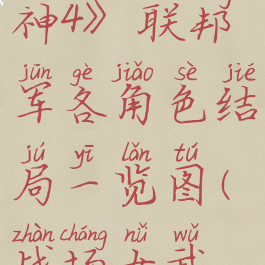 神4》 联邦
jūn gè jiǎo sè jié
军各角色结
jú yī lǎn tú
局一览图(
zhàn chǎng nǚ wǔ
战场女武